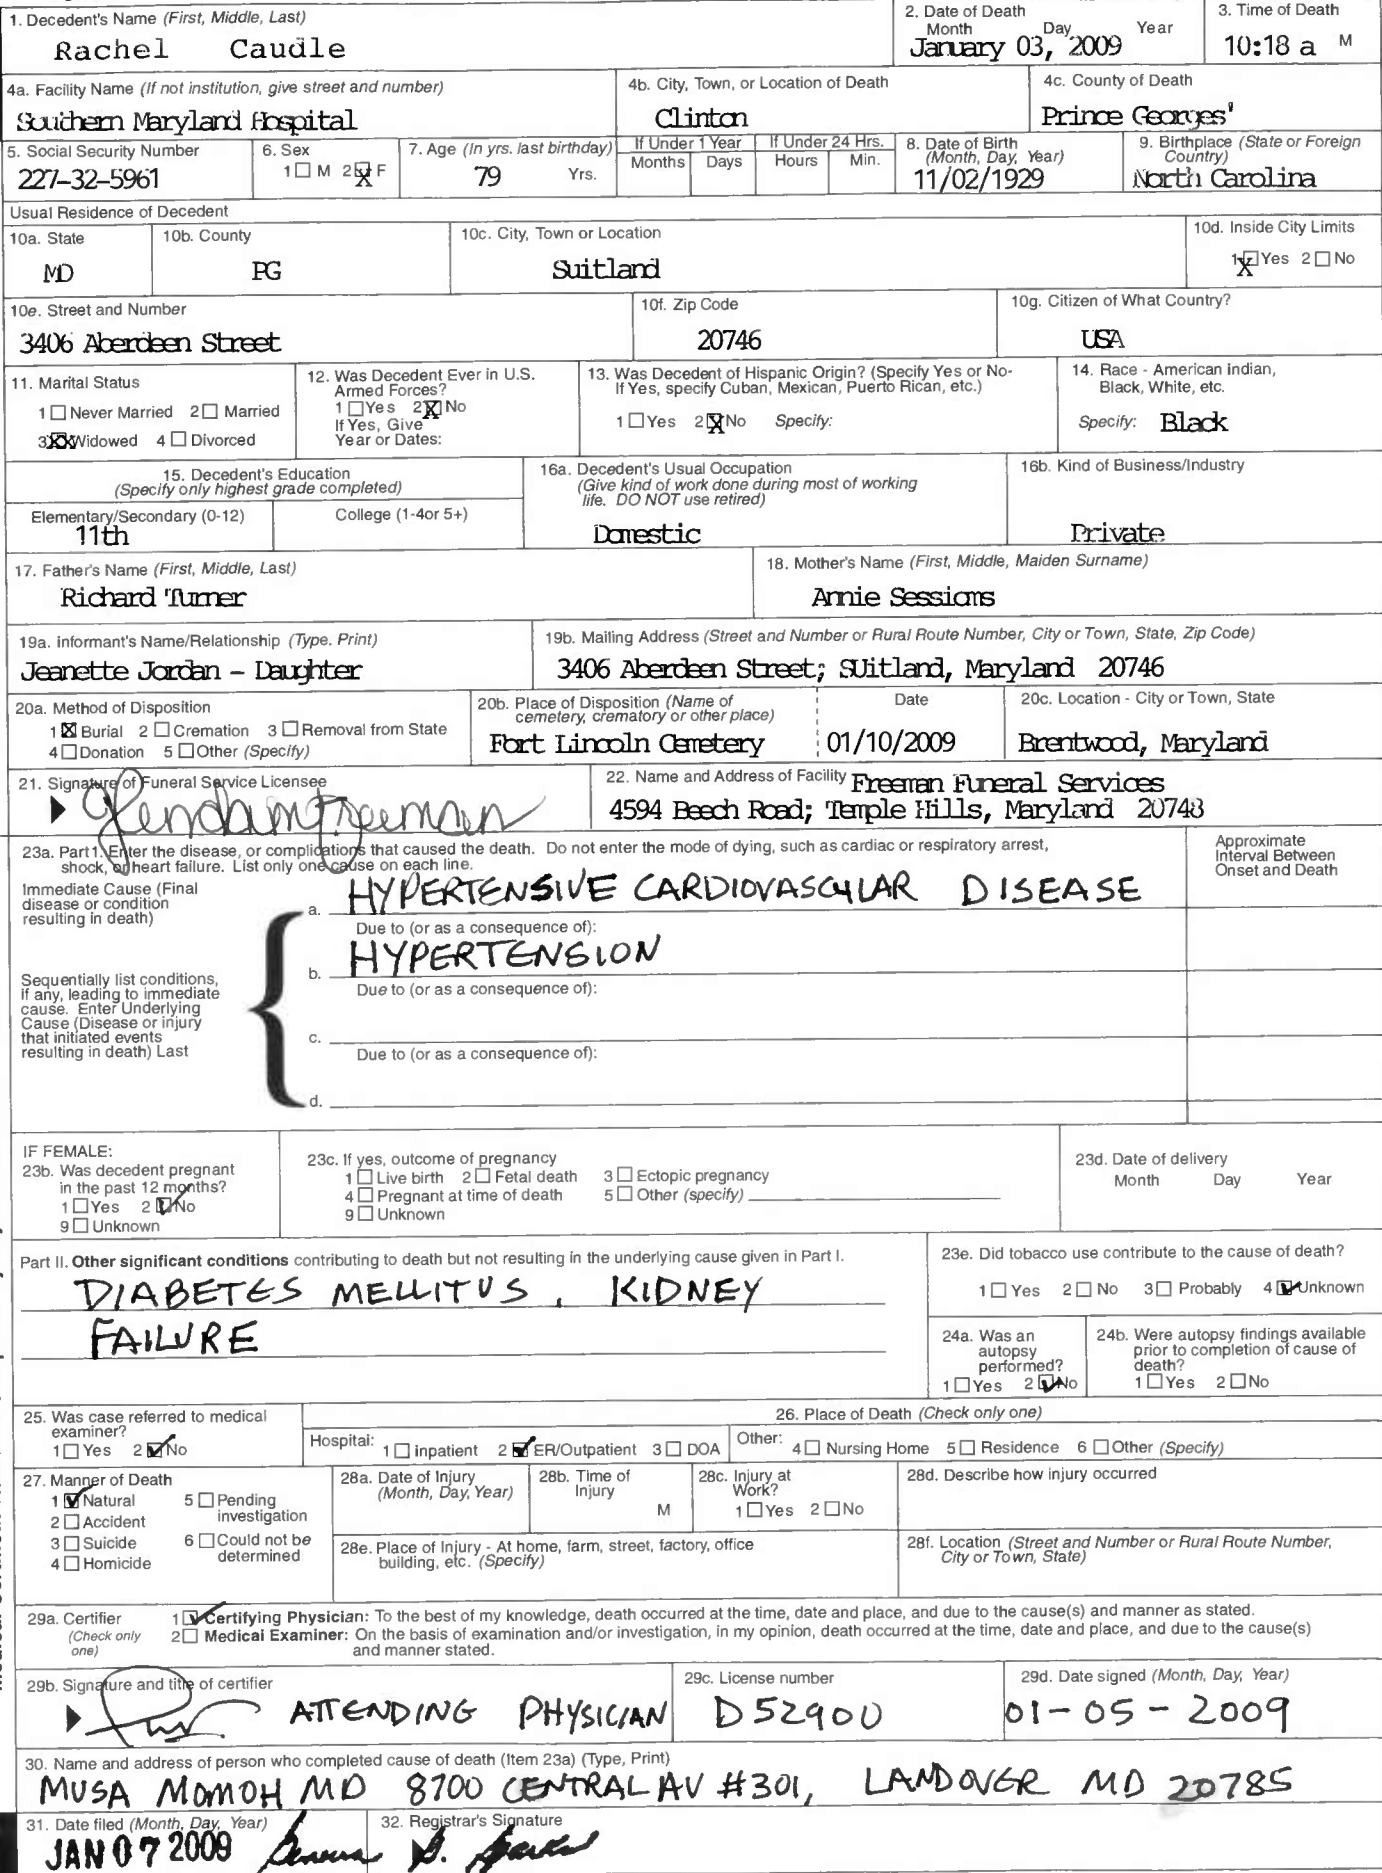 1. Decedent's Name (First, Middle, Last)
Rachel Caudle
2. Date of Death
Month Day Year
January 03, 2009
3. Time of Death
10:18 a M
4a. Facility Name (If not institution, give street and number)
Southern Maryland Hospital
4b. City, Town, or Location of Death
Clinton
4c. County of Death
Prince Georges'
5. Social Security Number
227-32-5961
6. Sex
1 ☐ M 2 ☒ F
7. Age (In yrs. last birthday)
79 Yrs.
If Under 1 Year
Months Days
If Under 24 Hrs.
Hours Min.
8. Date of Birth
(Month, Day, Year)
11/02/1929
9. Birthplace (State or Foreign
Country)
North Carolina
Usual Residence of Decedent
10a. State
MD
10b. County
PG
10c. City, Town or Location
Suitland
10d. Inside City Limits
1 ☒ Yes 2 ☐ No
10e. Street and Number
3406 Aberdeen Street
10f. Zip Code
20746
10g. Citizen of What Country?
USA
11. Marital Status
1 ☐ Never Married 2 ☐ Married
3 ☒ Widowed 4 ☐ Divorced
12. Was Decedent Ever in U.S.
Armed Forces?
1 ☐ Yes 2 ☒ No
If Yes, Give
Year or Dates:
13. Was Decedent of Hispanic Origin? (Specify Yes or No-
If Yes, specify Cuban, Mexican, Puerto Rican, etc.)
1 ☐ Yes 2 ☒ No Specify:
14. Race - American indian,
Black, White, etc.
Specify: Black
15. Decedent's Education
(Specify only highest grade completed)
Elementary/Secondary (0-12)
11th
College (1-4or 5+)
16a. Decedent's Usual Occupation
(Give kind of work done during most of working
life. DO NOT use retired)
Domestic
16b. Kind of Business/Industry
Private
17. Father's Name (First, Middle, Last)
Richard Turner
18. Mother's Name (First, Middle, Maiden Surname)
Annie Sessions
19a. informant's Name/Relationship (Type. Print)
Jeanette Jordan - Daughter
19b. Mailing Address (Street and Number or Rural Route Number, City or Town, State, Zip Code)
3406 Aberdeen Street; SUitland, Maryland 20746
20a. Method of Disposition
1 ☒ Burial 2 ☐ Cremation 3 ☐ Removal from State
4 ☐ Donation 5 ☐ Other (Specify)
20b. Place of Disposition (Name of
cemetery, crematory or other place)
Fort Lincoln Cemetery
Date
01/10/2009
20c. Location - City or Town, State
Brentwood, Maryland
21. Signature of Funeral Service Licensee
22. Name and Address of Facility Freeman Funeral Services
4594 Beech Road; Temple Hills, Maryland 20748
23a. Part1. Enter the disease, or complications that caused the death. Do not enter the mode of dying, such as cardiac or respiratory arrest,
shock, or heart failure. List only one cause on each line.
Approximate
Interval Between
Onset and Death
Immediate Cause (Final
disease or condition
resulting in death)
a. HYPERTENSIVE CARDIOVASCULAR DISEASE
Due to (or as a consequence of):
b. HYPERTENSION
Due to (or as a consequence of):
Sequentially list conditions,
if any, leading to immediate
cause. Enter Underlying
Cause (Disease or injury
that initiated events
resulting in death) Last
c.
Due to (or as a consequence of):
d.
IF FEMALE:
23b. Was decedent pregnant
in the past 12 months?
1 ☐ Yes 2 ☑ No
9 ☐ Unknown
23c. If yes, outcome of pregnancy
1 ☐ Live birth 2 ☐ Fetal death 3 ☐ Ectopic pregnancy
4 ☐ Pregnant at time of death 5 ☐ Other (specify)
9 ☐ Unknown
23d. Date of delivery
Month Day Year
Part II. Other significant conditions contributing to death but not resulting in the underlying cause given in Part I.
DIABETES MELLITUS, KIDNEY
FAILURE
23e. Did tobacco use contribute to the cause of death?
1 ☐ Yes 2 ☐ No 3 ☐ Probably 4 ☑ Unknown
24a. Was an
autopsy
performed?
1 ☐ Yes 2 ☑ No
24b. Were autopsy findings available
prior to completion of cause of
death?
1 ☐ Yes 2 ☐ No
25. Was case referred to medical
examiner?
1 ☐ Yes 2 ☑ No
26. Place of Death (Check only one)
Hospital: 1 ☐ inpatient 2 ☑ ER/Outpatient 3 ☐ DOA
Other: 4 ☐ Nursing Home 5 ☐ Residence 6 ☐ Other (Specify)
27. Manner of Death
1 ☑ Natural 5 ☐ Pending
investigation
2 ☐ Accident
3 ☐ Suicide 6 ☐ Could not be
determined
4 ☐ Homicide
28a. Date of Injury
(Month, Day, Year)
28b. Time of
Injury
M
28c. Injury at
Work?
1 ☐ Yes 2 ☐ No
28d. Describe how injury occurred
28e. Place of Injury - At home, farm, street, factory, office
building, etc. (Specify)
28f. Location (Street and Number or Rural Route Number,
City or Town, State)
29a. Certifier
(Check only
one)
1 ☑ Certifying Physician: To the best of my knowledge, death occurred at the time, date and place, and due to the cause(s) and manner as stated.
2 ☐ Medical Examiner: On the basis of examination and/or investigation, in my opinion, death occurred at the time, date and place, and due to the cause(s)
and manner stated.
29b. Signature and title of certifier
ATTENDING PHYSICIAN
29c. License number
D52900
29d. Date signed (Month, Day, Year)
01-05-2009
30. Name and address of person who completed cause of death (Item 23a) (Type, Print)
MUSA MOMOH MD 8700 CENTRAL AV #301, LANDOVER MD 20785
31. Date filed (Month, Day, Year)
JAN 07 2009
32. Registrar's Signature